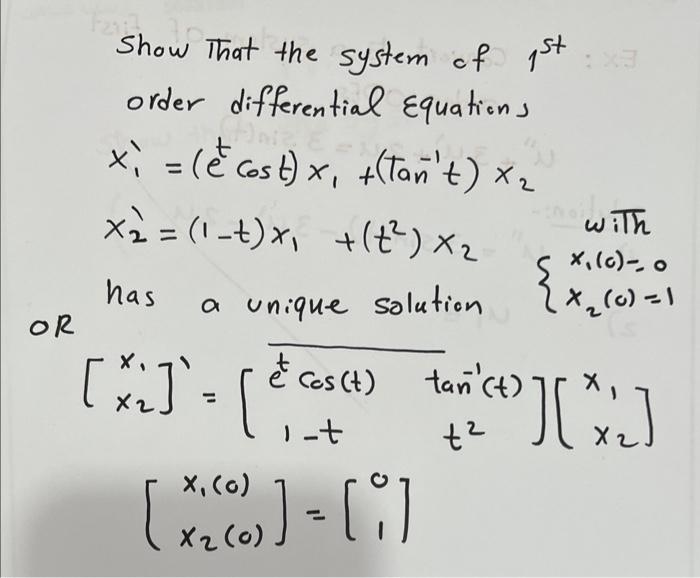 Show That the system of 1st
order differential Equations
x₁` = (e^t cos t) x₁ + (Tan⁻¹t) x₂
x₂` = (1-t)x₁ + (t²) x₂ with
{ x₁(0) = 0
x₂(0) = 1
has a unique solution
OR
[x₁ x₂]` = [e^t cos(t) tan⁻¹(t)
1-t t²][x₁ x₂]
[x₁(0) x₂(0)] = [0 1]